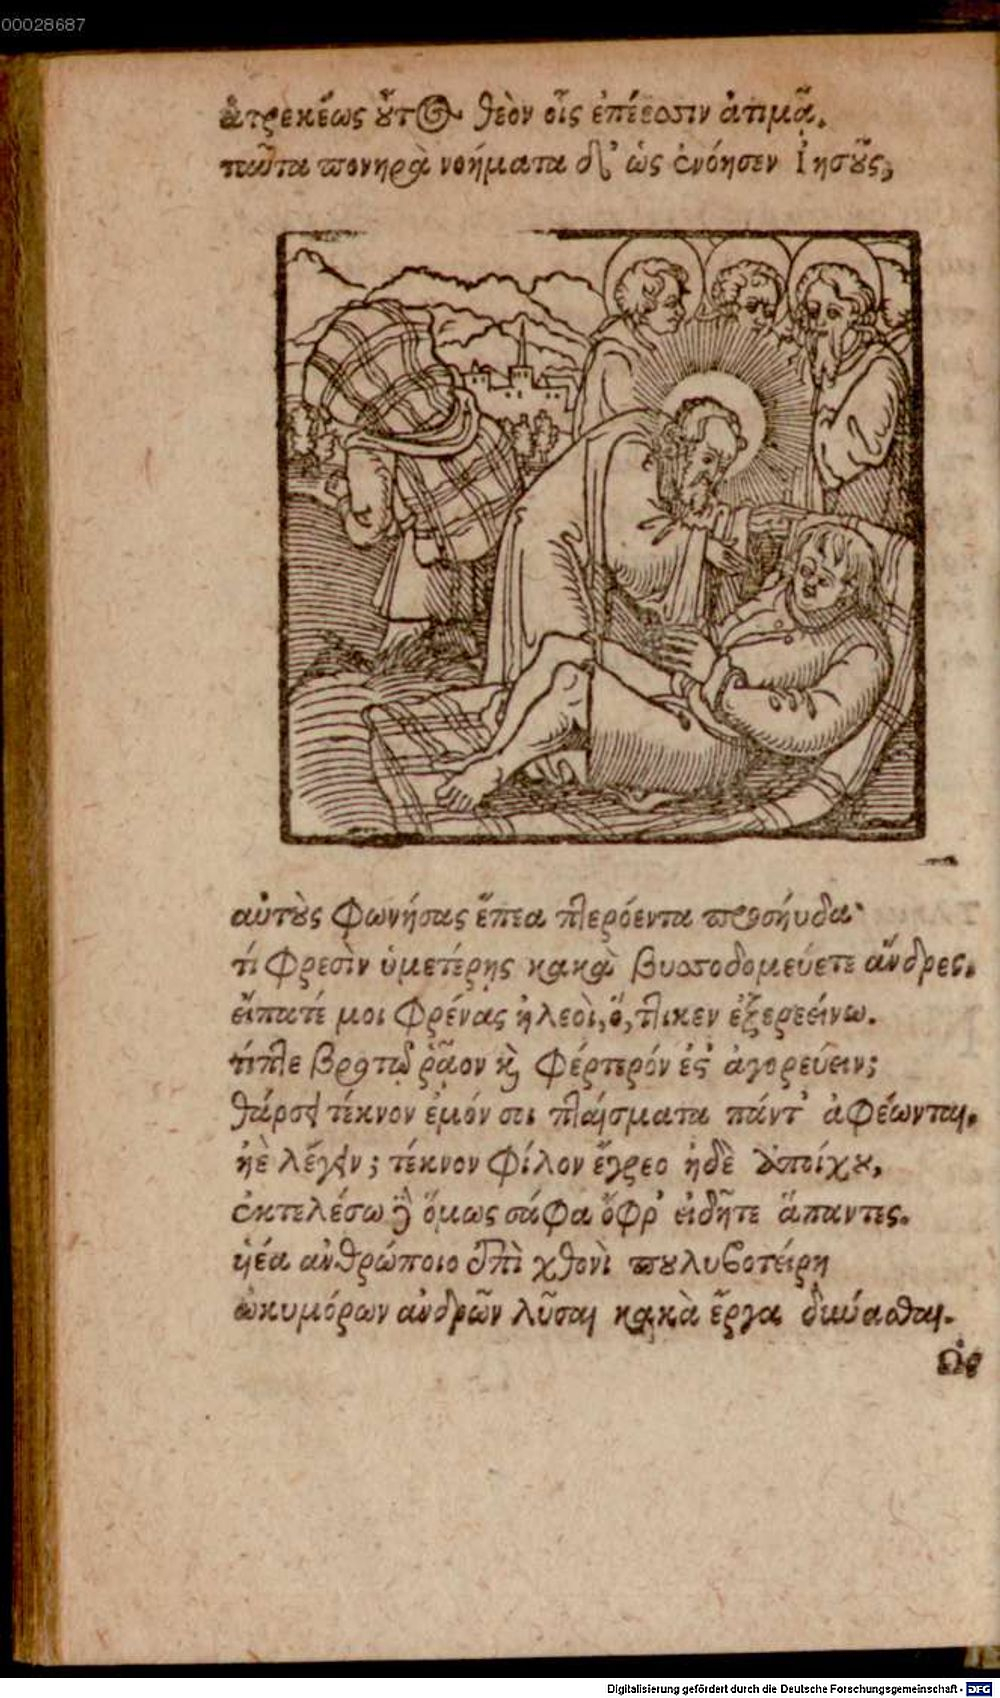 00028687
ἀτρεκέως οὗτος θεὸν οἷς ἐπέεσσιν ἀτιμᾷ.
ταῦτα πονηρὰ νοήματα δ' ὡς ἐνόησεν Ἰησοῦς,
αὐτοὺς φωνήσας ἔπεα πτερόεντα προσηύδα·
τί φρεσὶν ὑμετέρῃς κακὰ βυσσοδομεύετε ἄνδρες.
εἴπατέ μοι φρένας ἠλεοὶ, ὅ, τικεν ἐξερεείνω.
τίπτε βροτῷ ῥᾷον καὶ φέρτερόν ἐς' ἀγορεύειν;
θάρσει τέκνον ἐμόν σοι πταίσματα πάντ' ἀφέωνται.
ἠὲ λέγειν; τέκνον φίλον ἔγρεο ἠδὲ ἀποίχου,
ἐκτελέσω δὲ ὅμως σάφα ὄφρ' εἰδῆτε ἅπαντες.
ὑέα ἀνθρώποιο ἐπὶ χθονὶ πουλυβοτείρῃ
ὠκυμόρων ἀνδρῶν λῦσαι κακὰ ἔργα δύνασθαι.
Ὣς
Digitalisierung gefördert durch die Deutsche Forschungsgemeinschaft - DFG